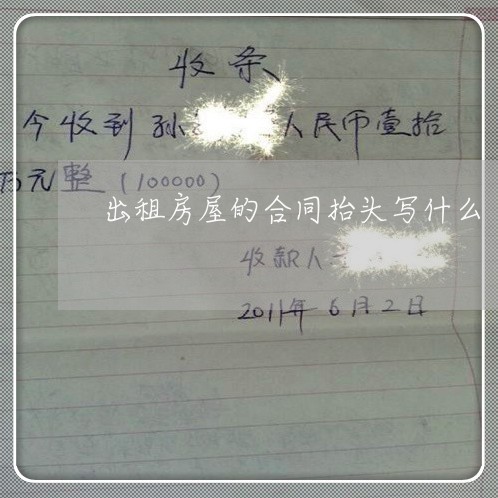 收条
今收到孙 人民币壹拾
万元整(100000)
出租房屋的合同抬头写什么
收款人
2011年6月2日